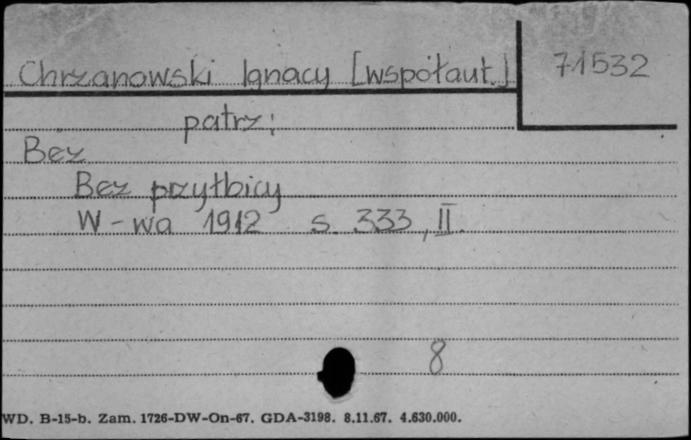 Chrzanowski Ignacy [współaut.] 71532
patrz:
Bez
Bez przyłbicy
W-wa 1912 s. 333, II.
8
WD. B-15-b. Zam. 1726-DW-On-67. GDA-3198. 8.11.67. 4.630.000.